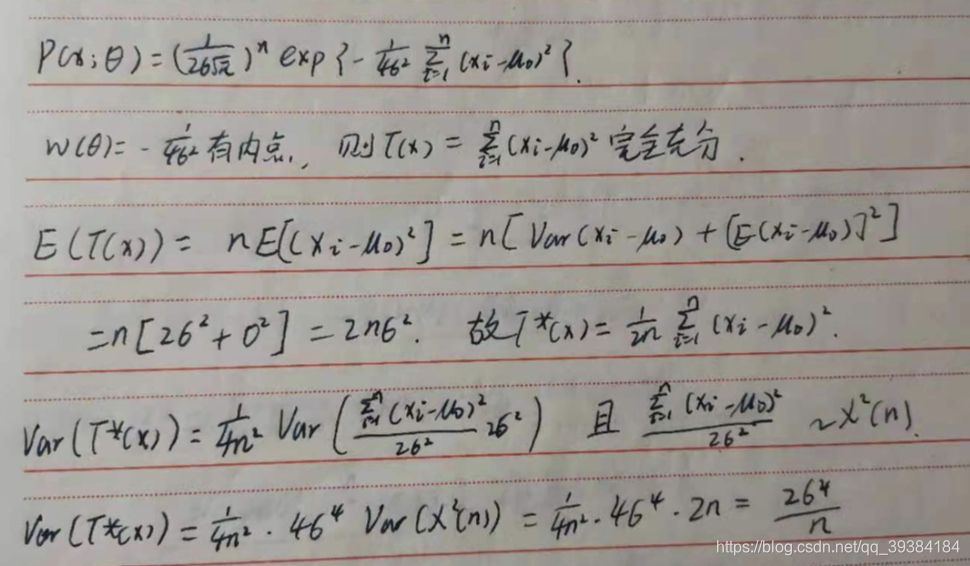 P(x;θ)=(1/(2σ√π))^n exp{-1/(4σ²) Σ_{i=1}^{n} (xi-μ0)²}.
w(θ)=-1/(4σ²) 有内点, 则T(x)=Σ_{i=1}^{n} (xi-μ0)² 完全充分.
E(T(x))= nE[(xi-μ0)²]=n[Var(xi-μ0)+[E(xi-μ0)]²]
=n[2σ²+0²]=2nσ². 故T*(x)=1/(2n) Σ_{i=1}^{n} (xi-μ0)².
Var(T*(x))=1/(4n²) Var(Σ_{i=1}^{n} (xi-μ0)²/(2σ²) 2σ²) 且 Σ_{i=1}^{n} (xi-μ0)²/(2σ²) ~χ²(n).
Var(T*(x))=1/(4n²)·4σ⁴ Var(χ²(n))=1/(4n²)·4σ⁴·2n=2σ⁴/n
https://blog.csdn.net/qq_39384184